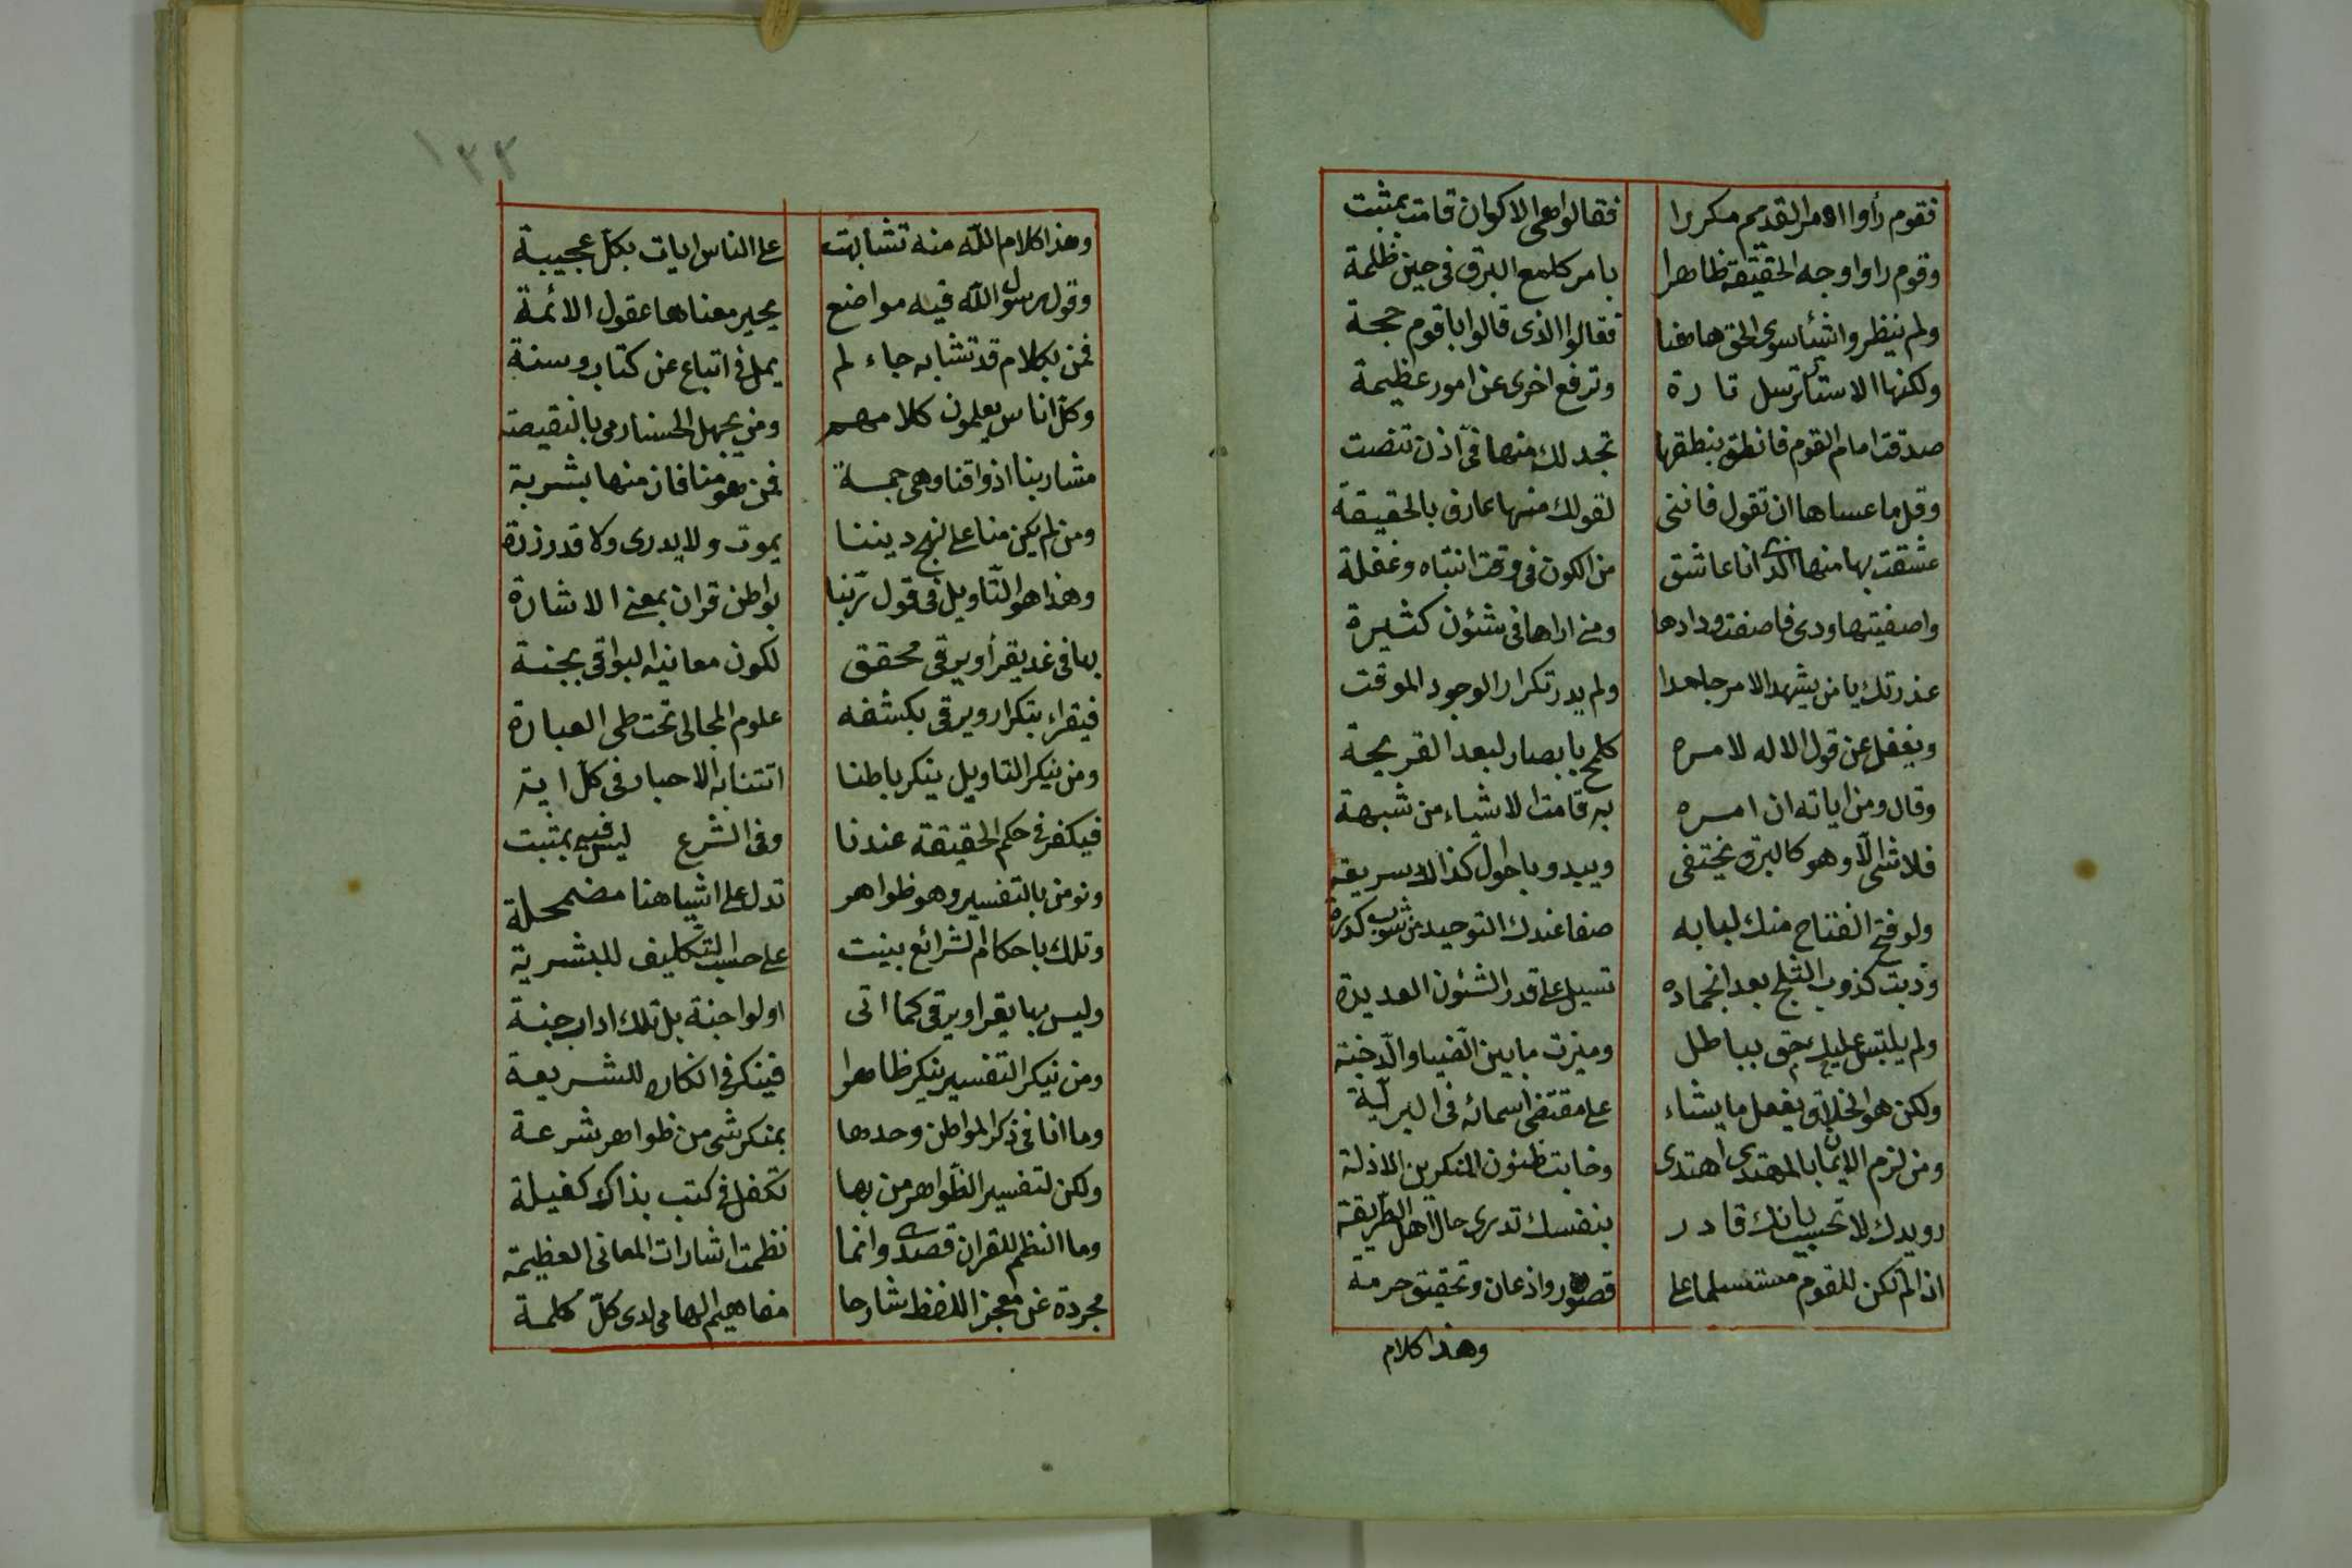 فقوم رأوا الامر القديم مكررا فقالوا هى الاكوان قامت بمثبت
وقوم راوا وجه الحقيقة ظاهرا بامر كلمع البرق فى حين ظلمة
ولم ينظروا شيئا سوى الحق هاهنا فقالوا الذى قالوا باقوم حجة
ولكنها الاستار ترسل تارة وترفع اخرى عن امور عظيمة
صدقت امام القوم فانطق بنطقها تجد لك منها فىّ اذن تنصت
وقل ما عساها ان تقول فاننى لقولك منها عارف بالحقيقة
عشقت بها منها الذى انا عاشق من الكون فى وقت انتباه وغفلة
واصفيتها ودى فاصفت ودادها ومنى اراها فى شئون كثيرة
عذرتك يا من يشهد الامر جاحدا ولم يدر تكرار الوجود الموقت
ويغفل عن قول الاله لامره كلمح بابصار لبعد القريحة
وقال ومن اياته ان امره به قامت الاشياء من شبهة
فلا شى الا وهو كالبرق يختفى ويبدو باحوال كذا لا سريعة
ولو فتح الفتاح منك لبابه صفا عندك التوحيد من شوب كدرة
وذبت كذوب الثلج بعد انجماده تسيل على قدر الشئون العديدة
ولم يلتبس عليك حق بباطل وميزت ما بين الضيا والدخنة
ولكن هو الخلاق يفعل ما يشاء على مقتضى اسمائه فى البرية
ومن لزم الايمان بالمهتدى اهتدى وخابت ظنون المنكرين الاذلة
رويدك لا تحسب بانك قادر بنفسك تدرى حال اهل الطريقة
اذا لم تكن للقوم مستسلما على قصور واذعان وتحقيق حرمة
وهذا كلام
١٣٣
وهذا كلام الله منه تشابهت على الناس ايات بكل عجيبة
وقول رسول الله فيه مواضع يحير معناها عقول الائمة
فمن بكلام قد تشابه جاء لم يمل فى اتباع عن كتاب وسنة
وكل اناس يعلمون كلامهم ومن يجهل الحسنا رمى بالنقيصة
مشاربنا اذواقنا وهى جمة فمن هو منا فاز منها بشربة
ومن لم يكن منا على نهج ديننا يموت ولا يدرى ولا قدر ذرة
وهذا هو التاويل فى قول ربنا بواطن قران بمعنى الاشارة
بها فى غد يقرأ ويرقى محقق لكون معانيه البواقى بجنة
فيقراء بتكرار ويرقى بكشفه علوم المجالى تحت طى العبارة
ومن ينكر التاويل ينكر باطنا اتتنا به الاحبار فى كل اية
فيكفر فى حكم الحقيقة عندنا وفى الشرع ليس فيه بمثبت
ونومن بالتفسير وهو ظواهر تدل على اشيا هنا مضمحلة
وتلك باحكام الشرائع بينت على حسب التكليف للبشرية
وليس بها يقرا ويرقى كما اتى اولوا جنة بل تلك اداب جنة
ومن ينكر التفسير ينكر ظاهرا فينكر فى انكاره للشريعة
وما انا فى ذكر المواطن وحدها بمنكر شى من ظواهر شرعة
ولكن لتفسير الظواهر من بها تكفل فى كتب بذاك كفيلة
وما النظم للقران قصدى وانما نظمت اشارات المعانى العظيمة
مجردة عن معجز اللفظ شارحا مفاهيم الهامى لدى كل كلمة